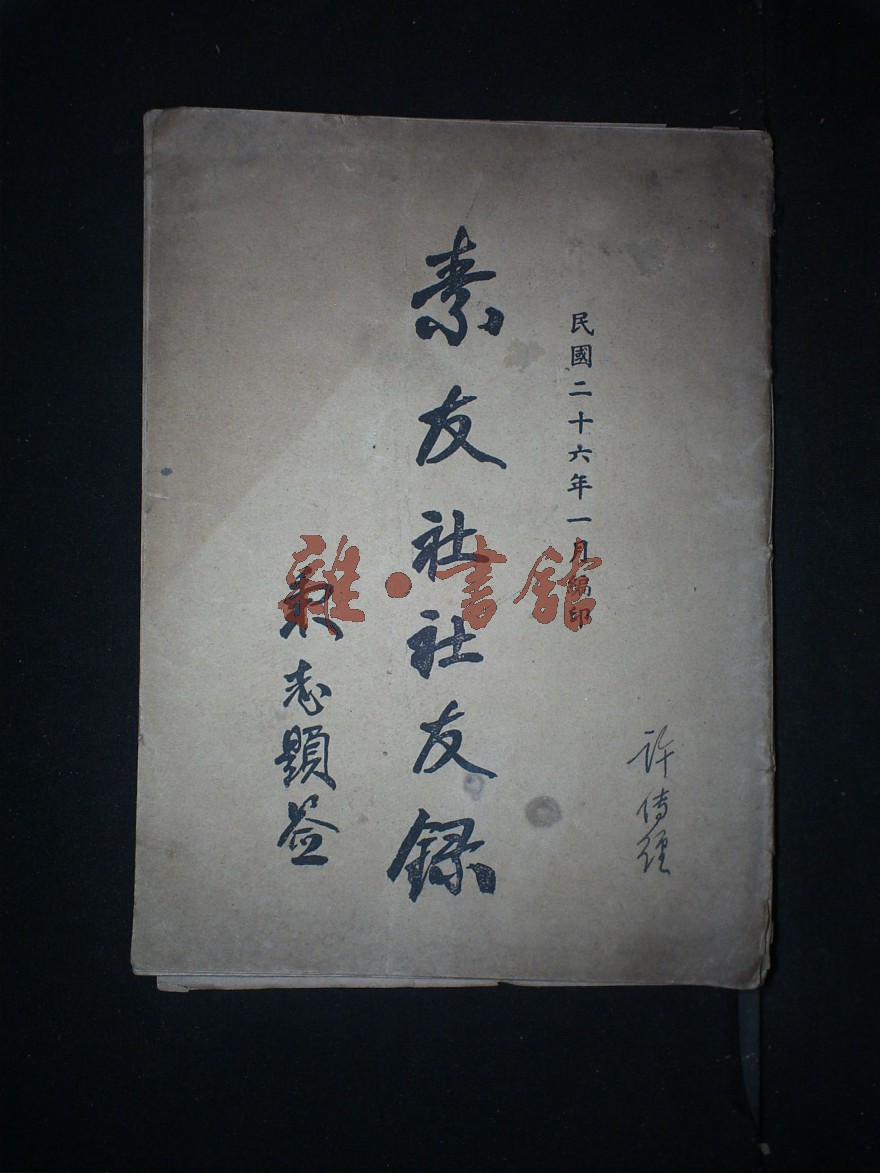 民國二十六年一月編印
許傳經
素友社社友錄
志題簽
雜·書館